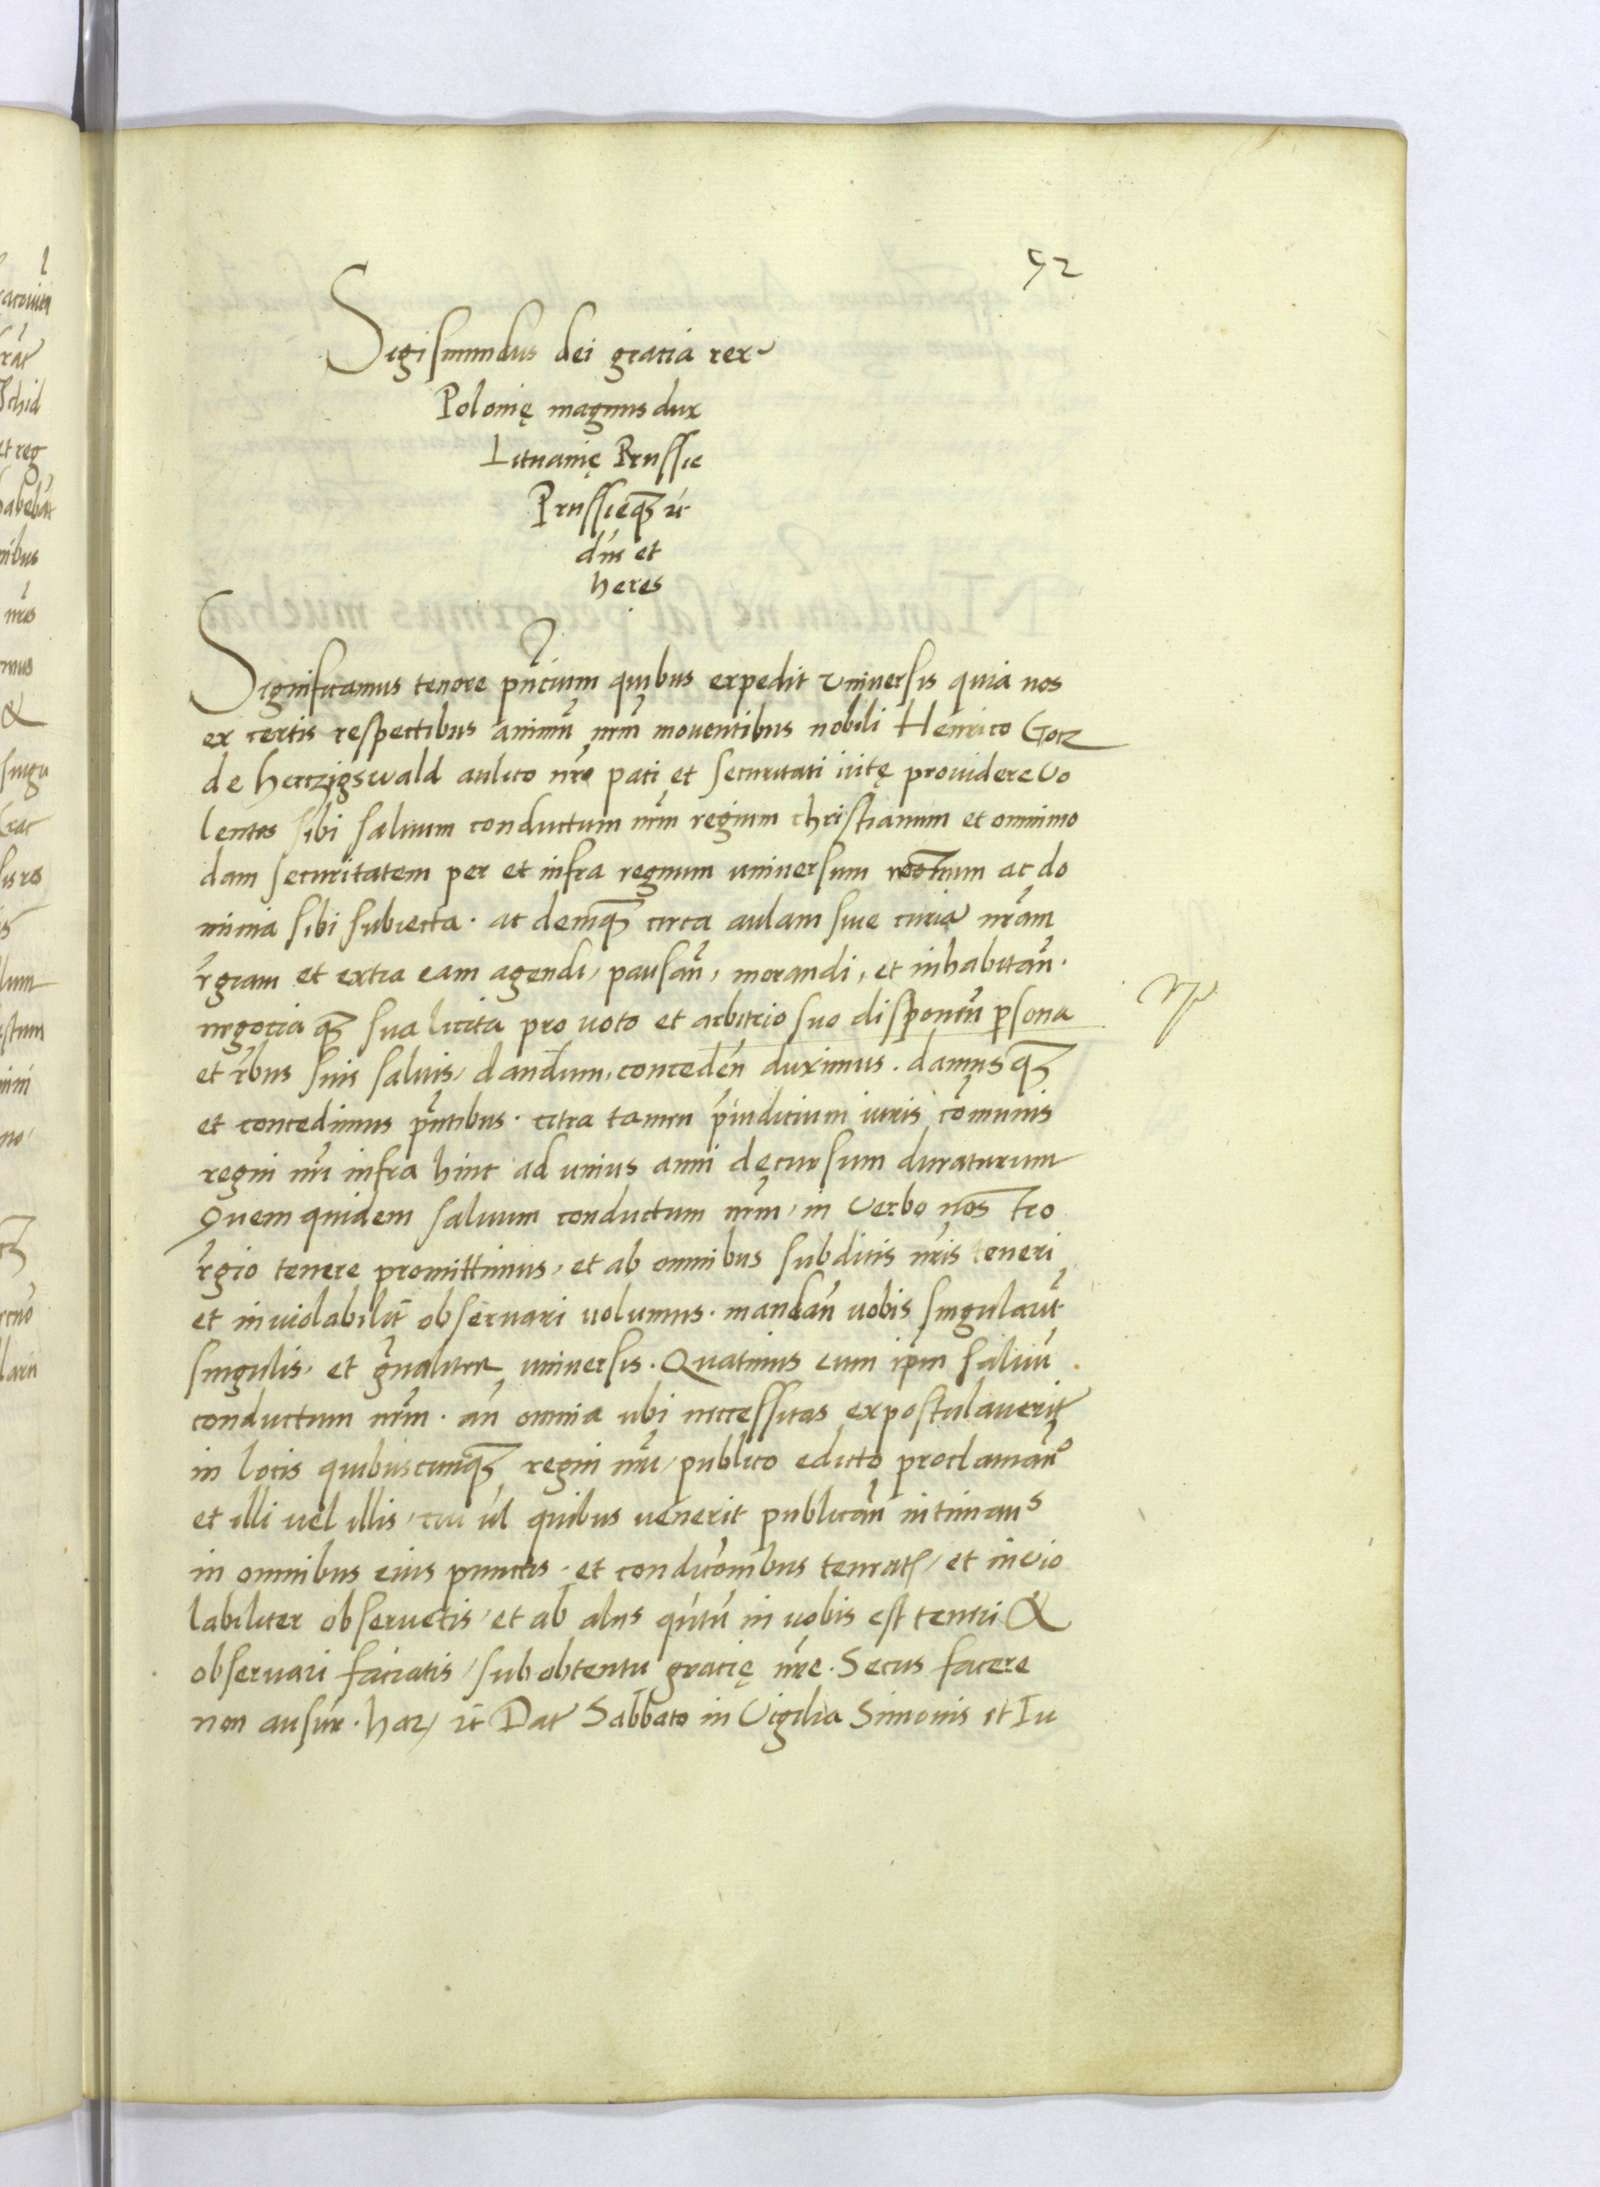 52
Sigismundus dei gratia rex
Polonię magnus dux
Lituanię Russie
Prussieq3 ēt
dn̄s et
heres
Significamus tenore pn̄cium quibus expedit vniuersis quia nos
ex certis respectibus animū nr̄m mouentibus nobili Henrico Gotz
de hertzigswald aulico nr̄o paci et securitati vitę prouidere vo
lentes sibi saluum conductum nr̄m regium christianum et omnimo
dam securitatem per et infra regnum vniuersum nostrum ac do
minia sibi subiecta. ac deniq3 circa aulam siue curiā nr̄am
r̄giam et extra eam agendi, pausan̄, morandi, et inhabitan̄.
negocia q3 sua licita pro uoto et arbitrio suo disponen̄ psona
et r̄bus suis saluis, dandum, conceden̄ duximus. damusq3
et concedimus pn̄tibus. citra tamen p̄iudicium iuris cōmunis
regni nr̄i infra hinc ad unius anni decursum duraturum
Quem quidem saluum conductum nr̄m, in verbo nostro
r̄gio tenere promittimus, et ab omnibus subditis nr̄is teneri
et inuiolabilit̄ obseruari uolumus. mandan̄ uobis singularit̄
singulis, et gn̄aliter vniuersis. Quatinus eum ip̄m saluū
conductum nr̄m. an̄ omnia ubi necessitas expostulauerit
in locis quibuscumq3 regni nr̄i, publico edicto proclaman̄
et illi uel illis, cui ul̄ quibus uenerit publican̄ intiman̄
in omnibus eius punctis. et condic̄onibus teneat, et inuio
labiliter obseruetis, et ab aliis qn̄tū in uobis est teneri &
obseruari faciatis, sub obtentu gracię nr̄e. Secus facere
non ausur. har, ēt Dat Sabbato in Vigilia Simonis et Iu